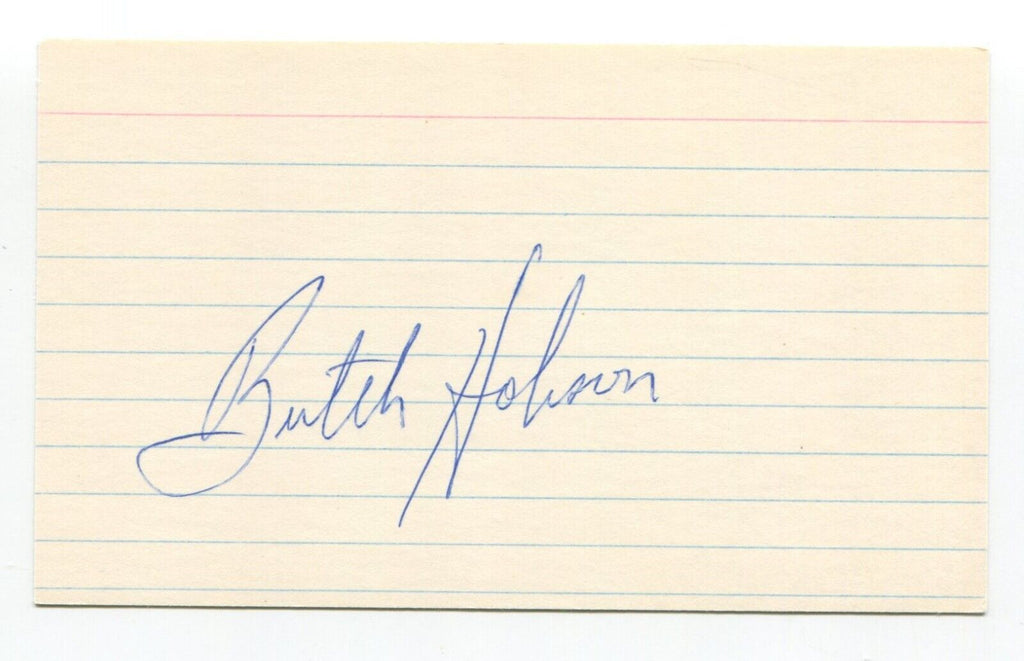 Butch Hobson